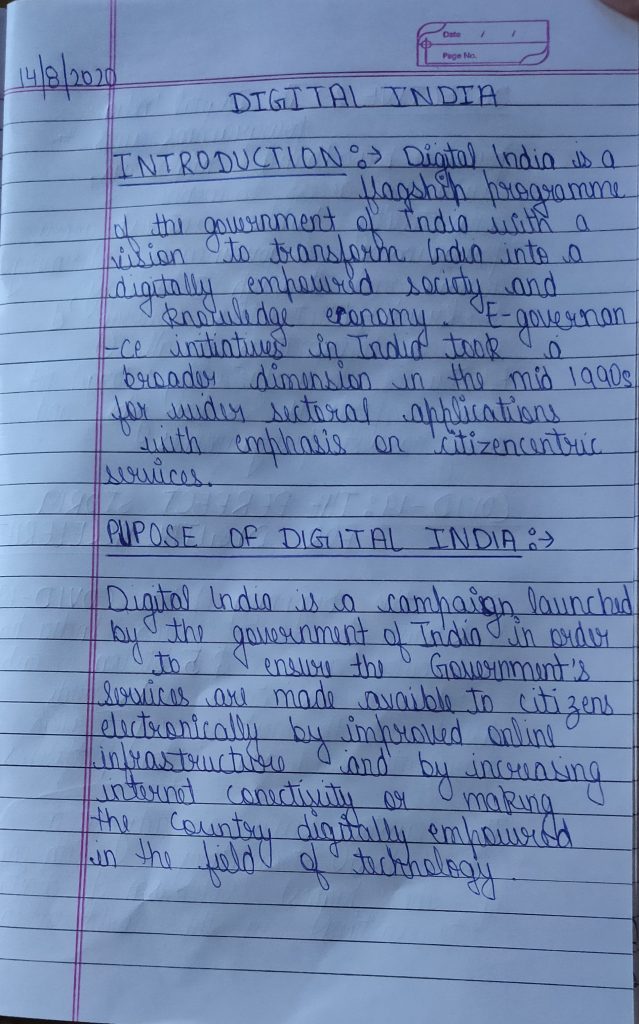 Date / /
Page No.
14/8/2020
DIGITAL INDIA
INTRODUCTION :→ Digital India is a
flagship programme
of the government of India with a
vision to transform India into a
digitally empowered society and
knowledge economy. E-governan
-ce initiatives in India took a
broader dimension in the mid 1990s
for wider sectoral applications
with emphasis on citizencentric
services.
PUPOSE OF DIGITAL INDIA :→
Digital India is a campaign launched
by the government of India in order
to ensure the Government's
services are made avaible to citizens
electronically by improved online
infrastructure and by increasing
internet conectivity or making
the Country digitally empowered
in the field of technology.